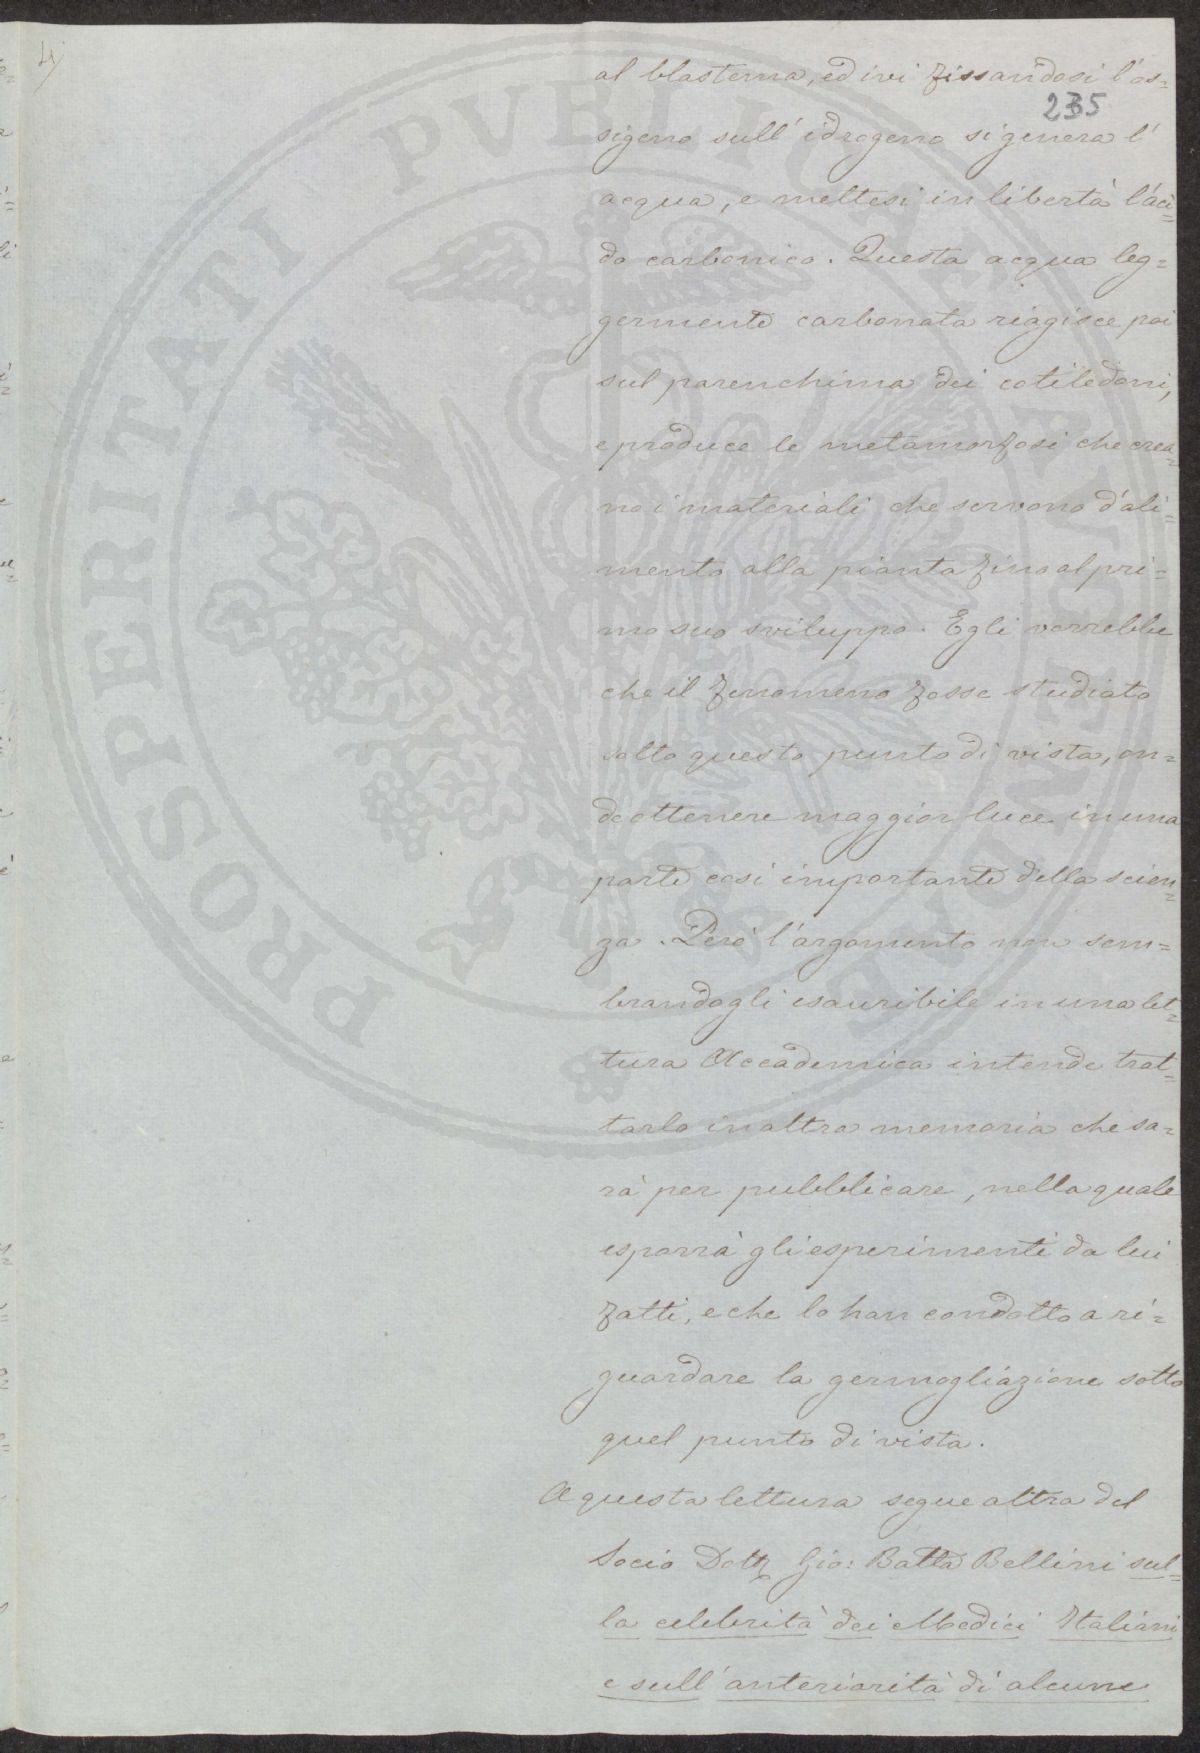 4)
235
al blastema, ed ivi fissandosi l'os=
sigeno sull'idrogeno si genera l'
acqua, e mettesi in libertà l'aci=
do carbonico. Questa acqua leg=
germente carbonata riagisce poi
sul parenchima dei cotiledoni,
e produce le metamorfosi che crea=
no i materiali che servono d'ali=
mento alla pianta fino al pri=
mo suo sviluppo. Egli vorrebbe
che il fenomeno fosse studiato
sotto questo punto di vista, on=
de ottenere maggior luce in una
parte così importante della scien=
za. Però l'argomento non sem=
brandogli esauribile in una let=
tura Accademica intende trat=
tarlo in altra memoria che sa=
rà per pubblicare, nella quale
esporrà gli esperimenti da lui
fatti, e che lo han condotto a ri=
guardare la germogliazione sotto
quel punto di vista.
A questa lettura segue altra del
Socio Dott. Gio: Batta Bellini sul=
la celebrità dei Medici Italiani
e sull'anteriorità di alcune
PROSPERITATI PVBLICAE AVGENDAE